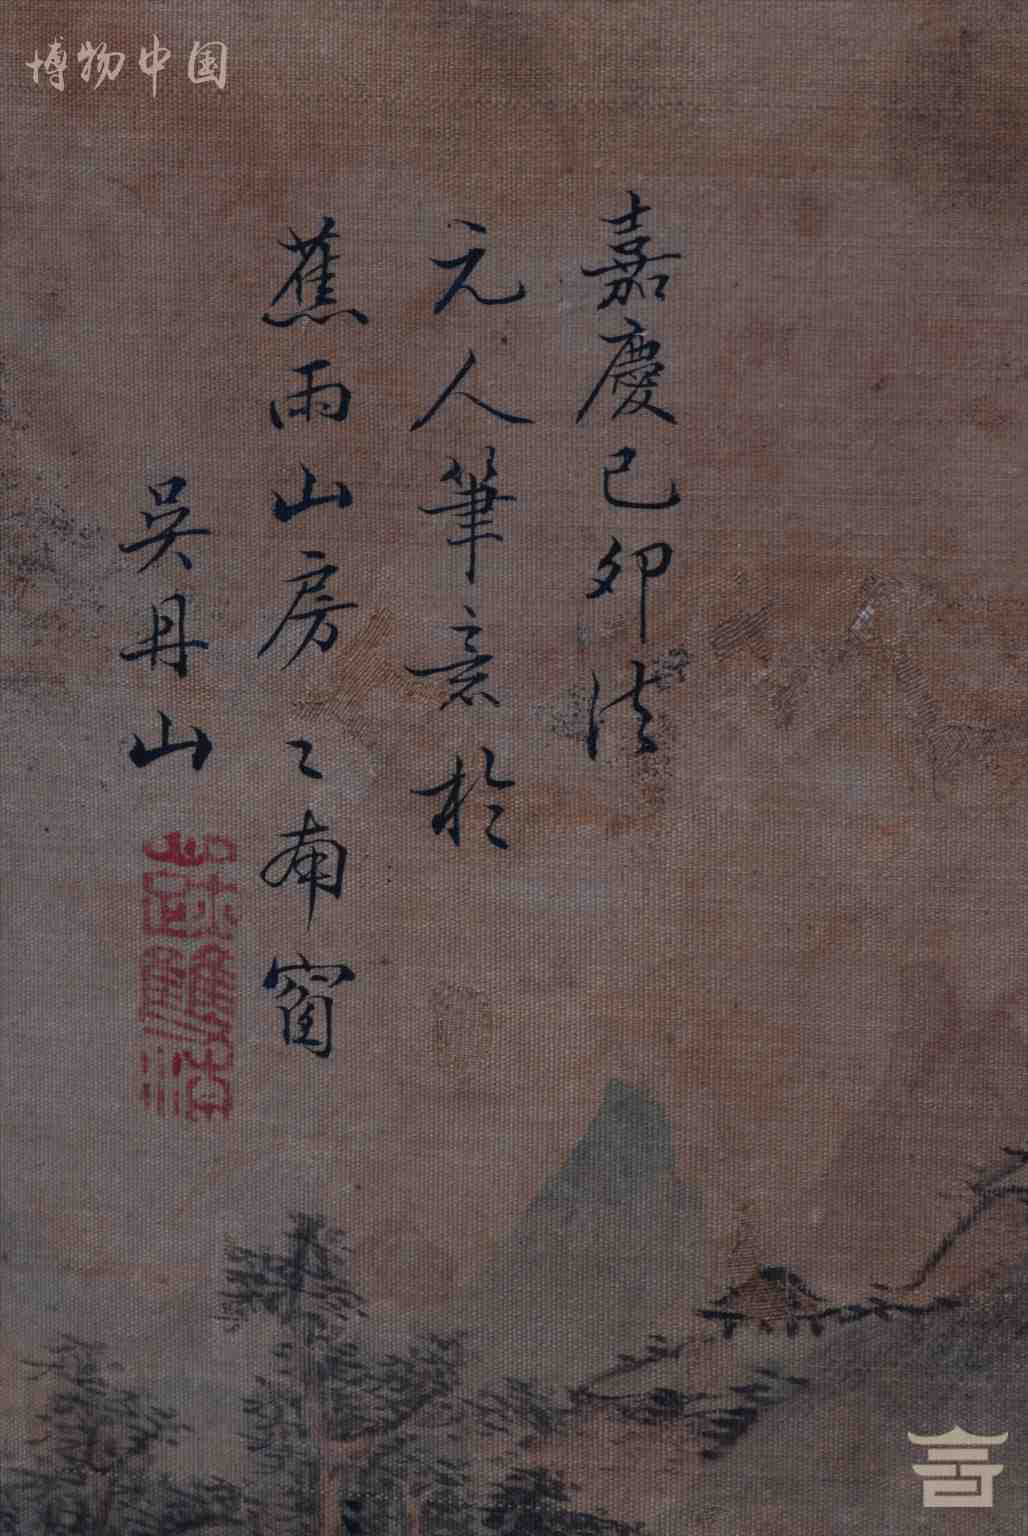 博物中国
嘉慶己卯法
元人筆意於
蕉雨山房之南窗
吳丹山